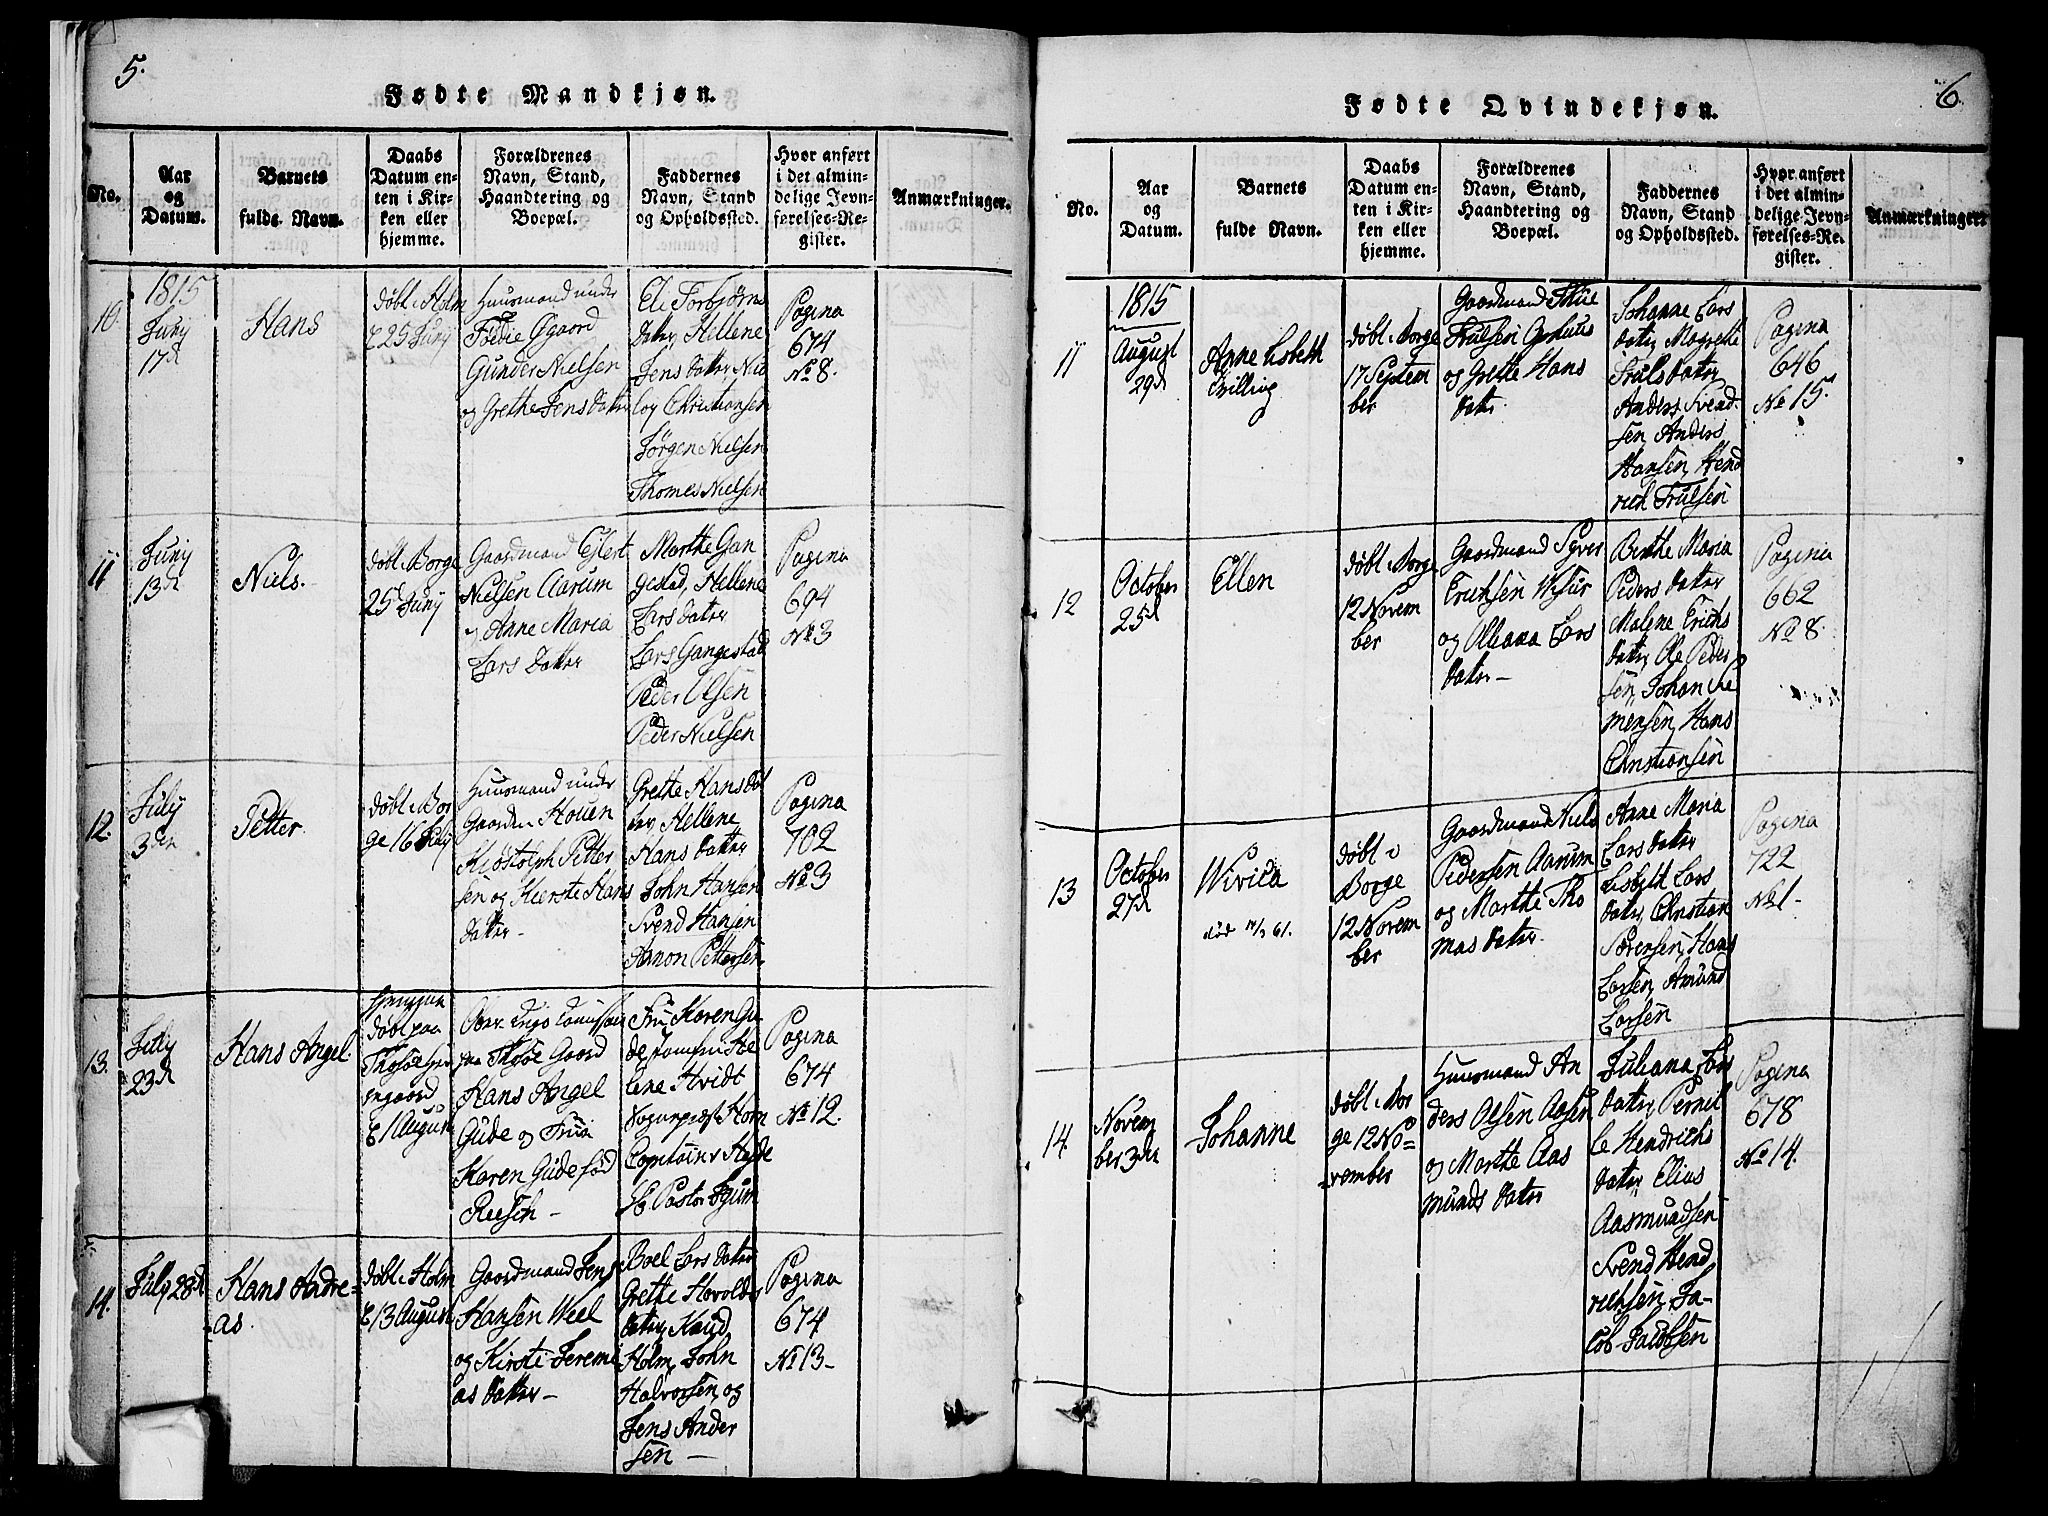 5.
Fødte Mandkjøn.
No.
Aar
og
Datum.
Barnets
fulde Navn.
Daabs
Datum en-
ten i Kir-
ken eller
hjemme.
Forældrenes
Navn, Stand,
Haandtering og
Boepæl.
Faddernes
Navn, Stand
og Opholdssted.
Hvor anført
i det almin-
delige Jevn-
førelses-Re-
gister.
Anmærkninger.
10.
1815
Juny
17d
Hans
døbt i Holm
E 25 Juny
Huusmand under
Øgaard
Gunder Nielsen
og Grethe Jens datter
Eli Torbjørns
datr, Hellene
Jens datr, Nic
lay Christiansen
Jørgen Nielsen
Thomes Nielsen
Pagina
674
No 8.
11
Juny
13d
Niels.
døbt i Borge
25d Juny
Gaardmand Eylert
Nielsen Aarum
og Anne Maria
Lars Datter
Marthe Gan
gestad, Hellene
Lars datter
Lars Gangestad
Peder Olsen
Peder Nielsen
Pagina
694
No 3
12.
July
3de
Petter.
døbt i Bor
ge 16 July
Huusmand under
Gaarden Houen
Kiøstolph Petter
sen og Kierste Hans
datter -
Grethe Hans dat
ter, Hellene
Hans datter
John Hansen
Svend Hansen
Amon Pettersen
Pagina
702
No 3
13.
July
23d
Hans Angel.
døbt paa
E 1 August
paa Thosøe Gaard
Hans Angel
Gude og Frue
Karen Gude fød
Reesch -
Fru Karen Gu
de
lene Hvidt
Capitain v Heyde
Pastor
Pagina
674
No 12.
14.
July 28d
Hans Andre=
as.
døbt i Holm
E 13 August
Gaardmand Jens
Hansen Weel
og Kirsti Jeremi
as datter -
Boel Lars datter
Grethe Havolds
datr, Knud
Holm, John
Halvorsen, og
Jens Ander
sen -
Pagina
674
No 13 -
6.
Fødte Qvindekjøn.
No.
Aar
og
Datum.
Barnets
fulde Navn.
Daabs
Datum en-
ten i Kir-
ken eller
hjemme.
Forældrenes
Navn, Stand,
Haandtering og
Boepæl.
Faddernes
Navn, Stand
og Opholdssted.
Hvor anført
i det almin-
delige Jevn-
førelses-Re-
gister.
Anmærkninger.
11
1815
August
29d
Anne Lisbeth
Tvilling
døbt i Borge
17 Septem
ber
Gaardmand Thue
Trulsen
og Grethe Hans
datr.
Johanne Lars
datr, Magrethe
Truls datter
Anders Svend
sen, Anders
Hansen, Hend
rich Trulsen
Pagina
646
No 15.
12
October
25d
Ellen
døbt i Borge
12 Novem
ber
Gaardmand Syver
Erichsen
og Oleana Lars
datr -
Birthe Maria
Peders datter
Malene Erichs
datr, Ole Peder
sen, Johan Cle
mensen, Hans
Christiansen
Pagina
662
No 8.
13
October
27d
Wivica
død 17/3 61.
døbt i
Borge
12 Novem
ber
Gaardmand Niels
Pedersen Aarum
og Marthe Tho
mas datr.
Anne Maria
Lars datter
Lisbeth Lars
datr, Christian
Sørensen, Hans
Larsen, Amund
Larsen
Pagina
722
No 1 -
14.
Novem
ber 3de
Johanne
døbt i Bor
ge 12 No=
vember
Huusmand An
ders Olsen Aasen
og Marthe Aas
munds datr
Juliana Lars
datr, Pernil
le Hendrichs
datr, Elias
Aasmundsen
Svend Hend
richsen, Ja-
cob Jacobsen
Pagina
678
No 14.